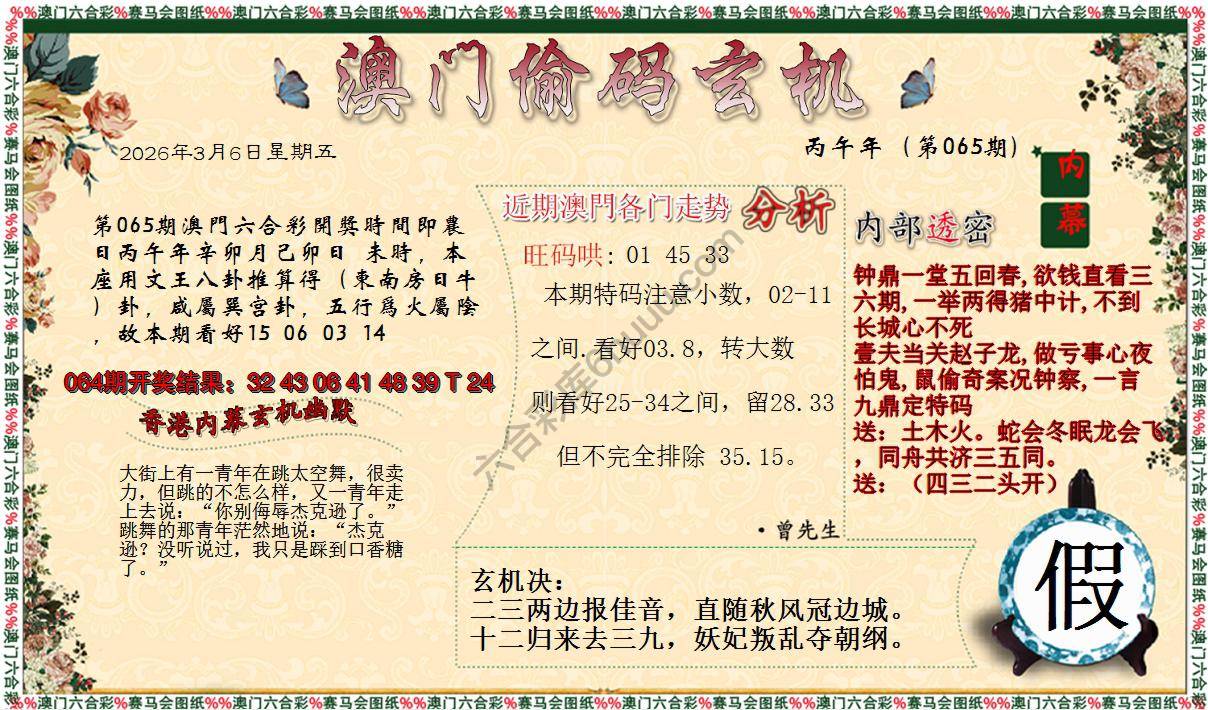 %%澳门六合彩%赛马会图纸%%澳门六合彩%赛马会图纸%%澳门六合彩%赛马会图纸%%澳门六合彩%赛马会图纸%%澳门六合彩%赛马会图纸%%澳门六合彩%赛马会图纸%
澳门偷码玄机
2026年3月6日星期五
丙午年（第065期）
内幕
第065期澳門六合彩開獎時間即農
日丙午年辛卯月己卯日 未時，本
座用文王八卦推算得（東南房日牛
）卦，威屬巽宫卦，五行爲火屬陰
，故本期看好15 06 03 14
064期开奖结果：32 43 06 41 48 39 T 24
香港内幕玄机幽默
大街上有一青年在跳太空舞，很卖
力，但跳的不怎么样，又一青年走
上去说：“你别侮辱杰克逊了。”
跳舞的那青年茫然地说：“杰克
逊？没听说过，我只是踩到口香糖
了。”
近期澳門各门走勢 分析
旺码哄: 01 45 33
本期特码注意小数，02-11
之间.看好03.8，转大数
则看好25-34之间，留28.33
但不完全排除 35.15。
·曾先生
内部透密
钟鼎一堂五回春,欲钱直看三
六期,一举两得猪中计,不到
长城心不死
壹夫当关赵子龙,做亏事心夜
怕鬼,鼠偷奇案况钟察,一言
九鼎定特码
送：土木火。蛇会冬眠龙会飞
，同舟共济三五同。
送：（四三二头开）
玄机决：
二三两边报佳音，直随秋风冠边城。
十二归来去三九，妖妃叛乱夺朝纲。
假